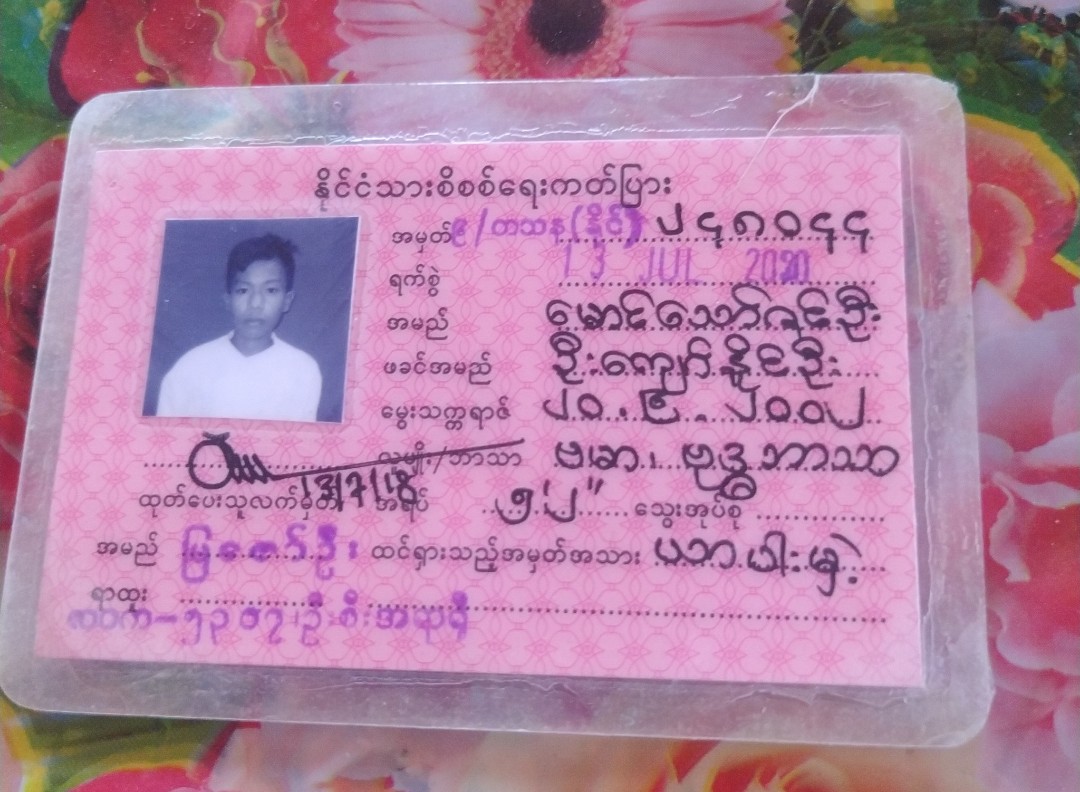 နိုင်ငံသားစိစစ်ရေးကတ်ပြား
အမှတ် ၉/တသန(နိုင်) ၂၄၈၀၄၄
ရက်စွဲ 13 JUL 2020
အမည် မောင်သော်ဇင်ဦး
ဖခင်အမည် ဦးကျော်နိုင်ဦး
မွေးသက္ကရာဇ် ၂၀.၉.၂၀၀၂
လူမျိုး/ဘာသာ ဗမာ၊ ဗုဒ္ဓဘာသာ
ထုတ်ပေးသူလက်မှတ် အရပ် ၅'၂" သွေးအုပ်စု
အမည် ထင်ရှားသည့်အမှတ်အသား ယာပါးမှဲ့
ရာထူး